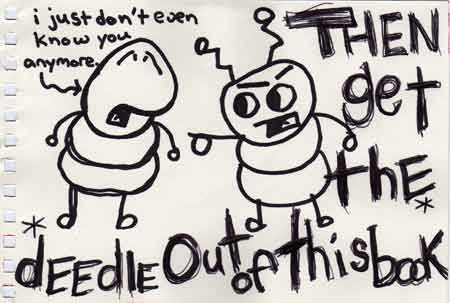 i just don't even
know you
anymore.
THEN
get
the
*dEEdLE Out of this book*